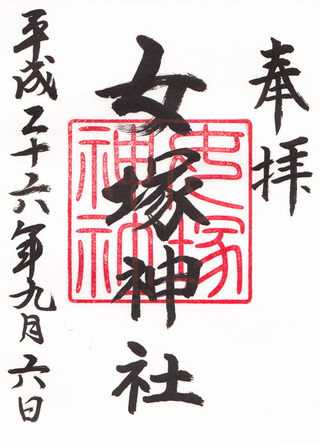 奉拝
女塚神社
女塚神社
平成二十六年九月六日